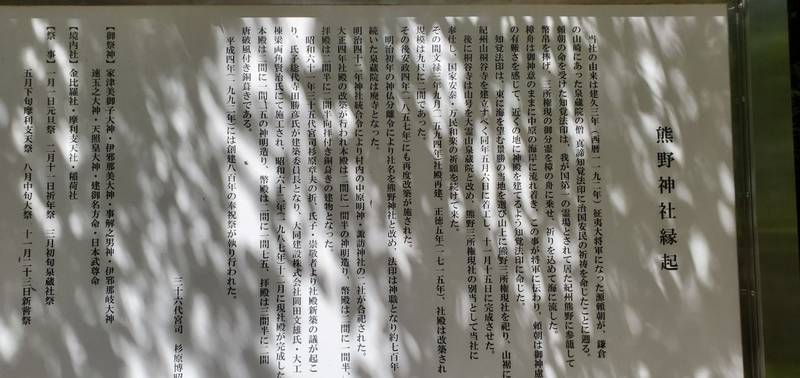 熊野神社縁起
当社の由来は建久三年（西暦一一九二年）征夷大将軍になった源頼朝が、鎌倉
の山崎にあった泉蔵院の僧 真諦知覚法印に治国安民の祈祷を命じたことに遡る。
頼朝の命を受けた知覚法印は、我が国第一の霊場とされて居た紀州熊野に参籠して
幣帛を捧げ、三所権現の御分霊を樟の舟に乗せ、祈りを込めて海に流した。
樟舟は御神意のままに中原の海岸に流れ着き、この事が将軍に伝わり、頼朝は御神慮
の有難さを感じて、近くの地に神殿を建てるよう知覚法印に命じた。
知覚法印は、東に海を望む景勝の当地を選び山上に熊野三所権現社を祀り、山裾に
紀州山桐谷寺を建立すべく同年五月六日に着工し、十一月十五日に完成させた。
後に桐谷寺は山号を大霊山泉蔵院と改め、熊野三所権現社の別当として当社に
奉仕し、国家安泰・万民和楽の祈願を続けて来た。
その間文禄三年九月（一五九四年）社殿再建、正徳五年（一七一五年）、社殿は改築され
規模は九尺に二間であった。
その後安政四年（一八五七年）にも再度改築が施された。
明治初年の神仏分離令により社名を熊野神社と改め、法印は神職となり約七百年
続いた泉蔵院は廃寺となった。
明治四十二年神社統合令により村内の中原明神・諏訪神社の二社が合祀された。
大正四年社殿の改築が行われ本殿は二間に一間半の神明造り、幣殿は二間に一間半、
拝殿は三間半に二間半向拝付き銅葺きの建物となった。
昭和六十一年三十五代宮司杉原章夫の折、氏子・崇敬者より社殿新築の議が起こ
り、氏子総代寺田勝彦氏が建築委員長となり、大同建設株式会社岡田文雄氏・大工
棟梁両角賢治氏にて施工され、昭和六十二年（一九八七年）十二月に現社殿が完成した
本殿は二間に一間、五の神明造り、幣殿は二間に一間七五、拝殿は三間半に二間
唐破風付き銅葺きである。
平成四年（一九九二年）には創建八百年の奉祝祭が執り行われた。
三十六代宮司 杉原博昭
【御祭神】家津美御子大神・伊邪那美大神・事解之男神・伊邪那岐大神
速玉之大神・天照皇大神・建御名方命・日本武尊命
【境内社】金比羅社・摩利支天社・稲荷社
【祭 事】一月一日元旦祭 二月十一日祈年祭 三月初旬泉蔵社祭
五月下旬摩利支天祭 八月中旬大祭 十一月二十三日新嘗祭